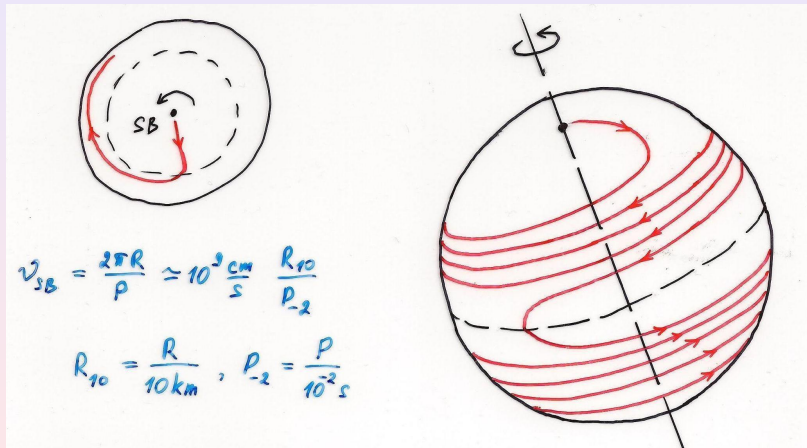 SB
υ_SB = 2πR/P ≃ 10⁹ cm/s R₁₀/P₋₂
R₁₀ = R/10 km , P₋₂ = P/10⁻² s